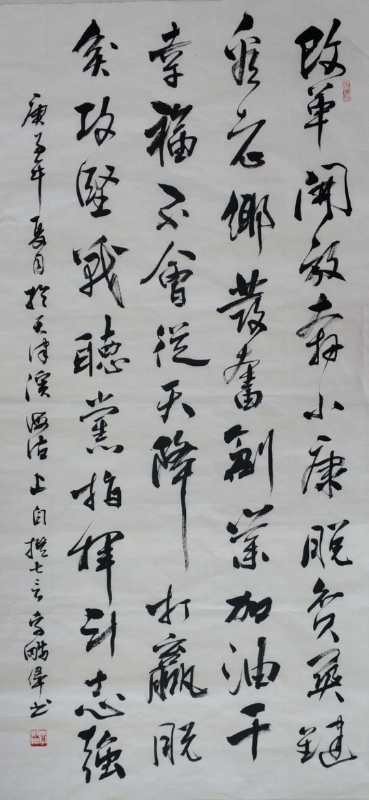 改革開放奔小康脫貧关鍵
看老鄉發奮創業加油干
幸福不會從天降打贏脫
貧攻堅戰聽黨指揮斗志強
庚子年夏月於天津濱海沽上自撰七言书